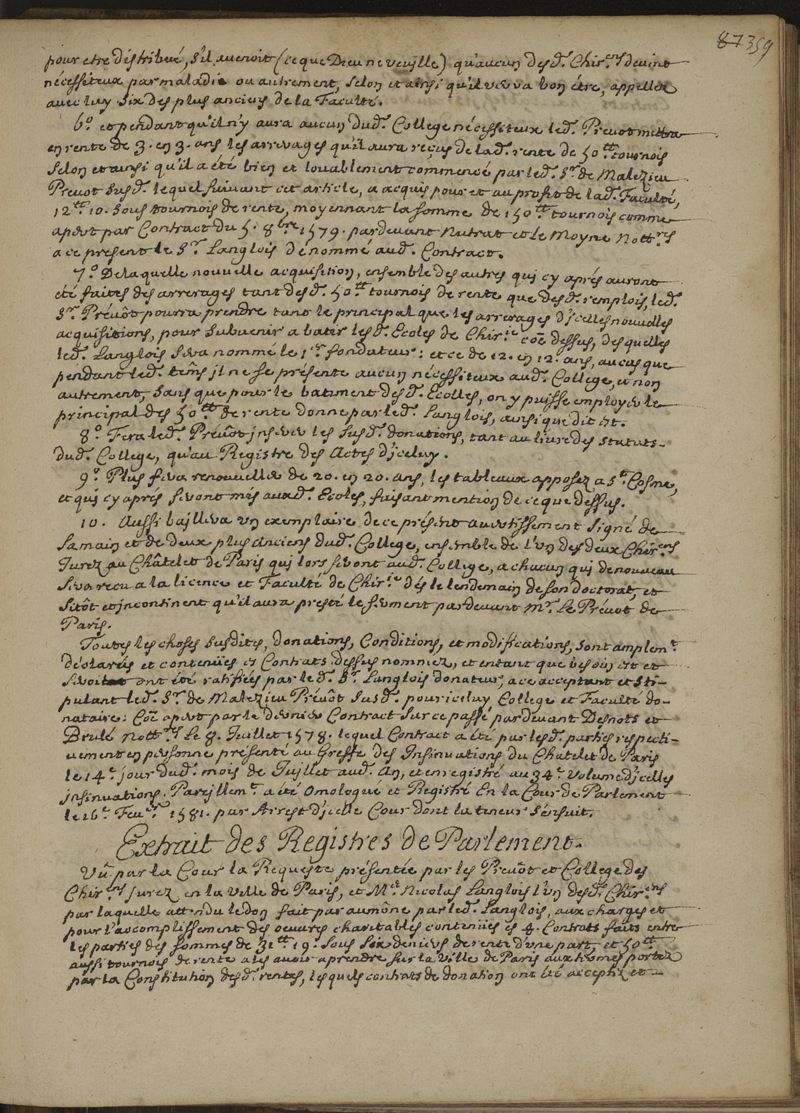 87 359
pour etre distribué, s'il avenoit (ce que Dieu ne veuille) qu'aucun desd. Chir.ens devint
nécessiteux par maladie ou autrement, selon et ainsi qu'il verra bon être, appellez
avec luy six des plus anciens de la Faculté.
6.º et pendant qu'il n'y aura aucun dud. College nécessiteux led. Prevot mettra
en rente de 3. en 3. ans les arrerages qu'il aura reçus de lad. rente de 50.tt tournois
selon et ainsi qu'il a été bien et louablement commencé par led. Sr. de Malezieu
Prevot susd. lequel suivant cet article, a acquis pour et au profit de lad. Faculté,
12.tt 10. sous tournois de rente, moyennant la somme de 150.tt tournois comme
apert par Contract du 5. 8bre 1579. pardevant Nutrat et le Moyne Nott.rs
a ce present le Sr. Langlois dénommé aud. Contract.
7.º De laquelle nouvelle acquisition, ensemble des autres qui cy aprés auront
été faites des arrerages tant desd. 50.tt tournois de rente que desd. remplois, led.
Sr. Prévôt pourra prendre tant le principal que les arrerages d'jcelles nouvelles
acquisitions, pour subvenir a batir lesd. Ecoles de Chir.ie coē dessus, desquelles
led. Langlois sera nommé le 1.r fondateur: et ce de 12. en 12. ans, au cas que
pendant led. tems jl ne se présente aucun nécessiteux aud. College, et non
autrement, sans que pour le batiment desd. Ecolles, on y puisse employer le
principal des 50.tt de rente donne par led. Langlois, ainsi que dit est.
8.º Fera led. Prévôt jnserer les susd. donations, tant au livre des statuts
dud. College, qu'au Registre des Actes d'jceluy.
9.º Plus fera renouveller de 20. en 20. ans, les tableaux apposez a St. Cosme,
et qui cy aprés seront mis auxd. Ecoles, faisant mention de ce que dessus.
10. Aussi baillera un exemplaire de ce présent avertissement signé de
sa main et de deux plus anciens dud. College, ensemble de l'un des deux Chir.ens
Jurez au Châtelet de Paris qui lors seront aud. College, a chacun qui de nouveau
sera recu a la licence et Faculté de Chir.ie dés le lendemain de son doctorat, et
sitôt et jncontinent qu'il aura presté le serment pardevant Mr. Le Prevot de
Paris.
Toutes les choses susdites, donations, Conditions, et modifications, sont amplem.t
déclarées et contenües és Contrats dessus nommez, et entant que besoin est et
seroit ont été ratifiées par le d. Sr. Langlois donateur, a ce acceptant et sti-
pulant led. Sr. de Malezieu Prévôt susd. pour iceluy College et Faculté do-
nataire: Coē apert par le dernier Contract sur ce passé pardevant Desnots et
Brulé Nott.rs le 8. Juillet 1578. lequel Contract a été par lesd. parties respecti-
vement en personne présenté au Greffe des Insinuations du Chatelet de Paris
le 14.e jour dud. mois de Juillet aud. An, et enregistré au 34.e Volume d'jcelles
jnsinuations. Pareillem.t a été omologué et Registré En la Cour de Parlement
le 16.e Feu.r 1581. par Arrest d'jcelle Cour dont la teneur s'ensuit.
Extrait des Registres de Parlement.
Vû par la Cour la Requeste présentée par les Prevôt et College des
Chir.ens Jurez en la Ville de Paris, et Me. Nicolas Langlois l'un desd. Chir.ens
par laquelle attendu le don fait par aumône par led. Langlois, aux charges et
pour l'accomplissement des oeuvres charitables contenües és 4. Contrats faits entre
les parties des sommes de 31.tt 19. sous six deniers de rente d'une part, et 50.tt
aussi tournois de rente a les avoir a prendre sur la Ville de Paris aux termes portez
par la Constitution desd. rentes, lesquels contrats de donation ont été acceptez et